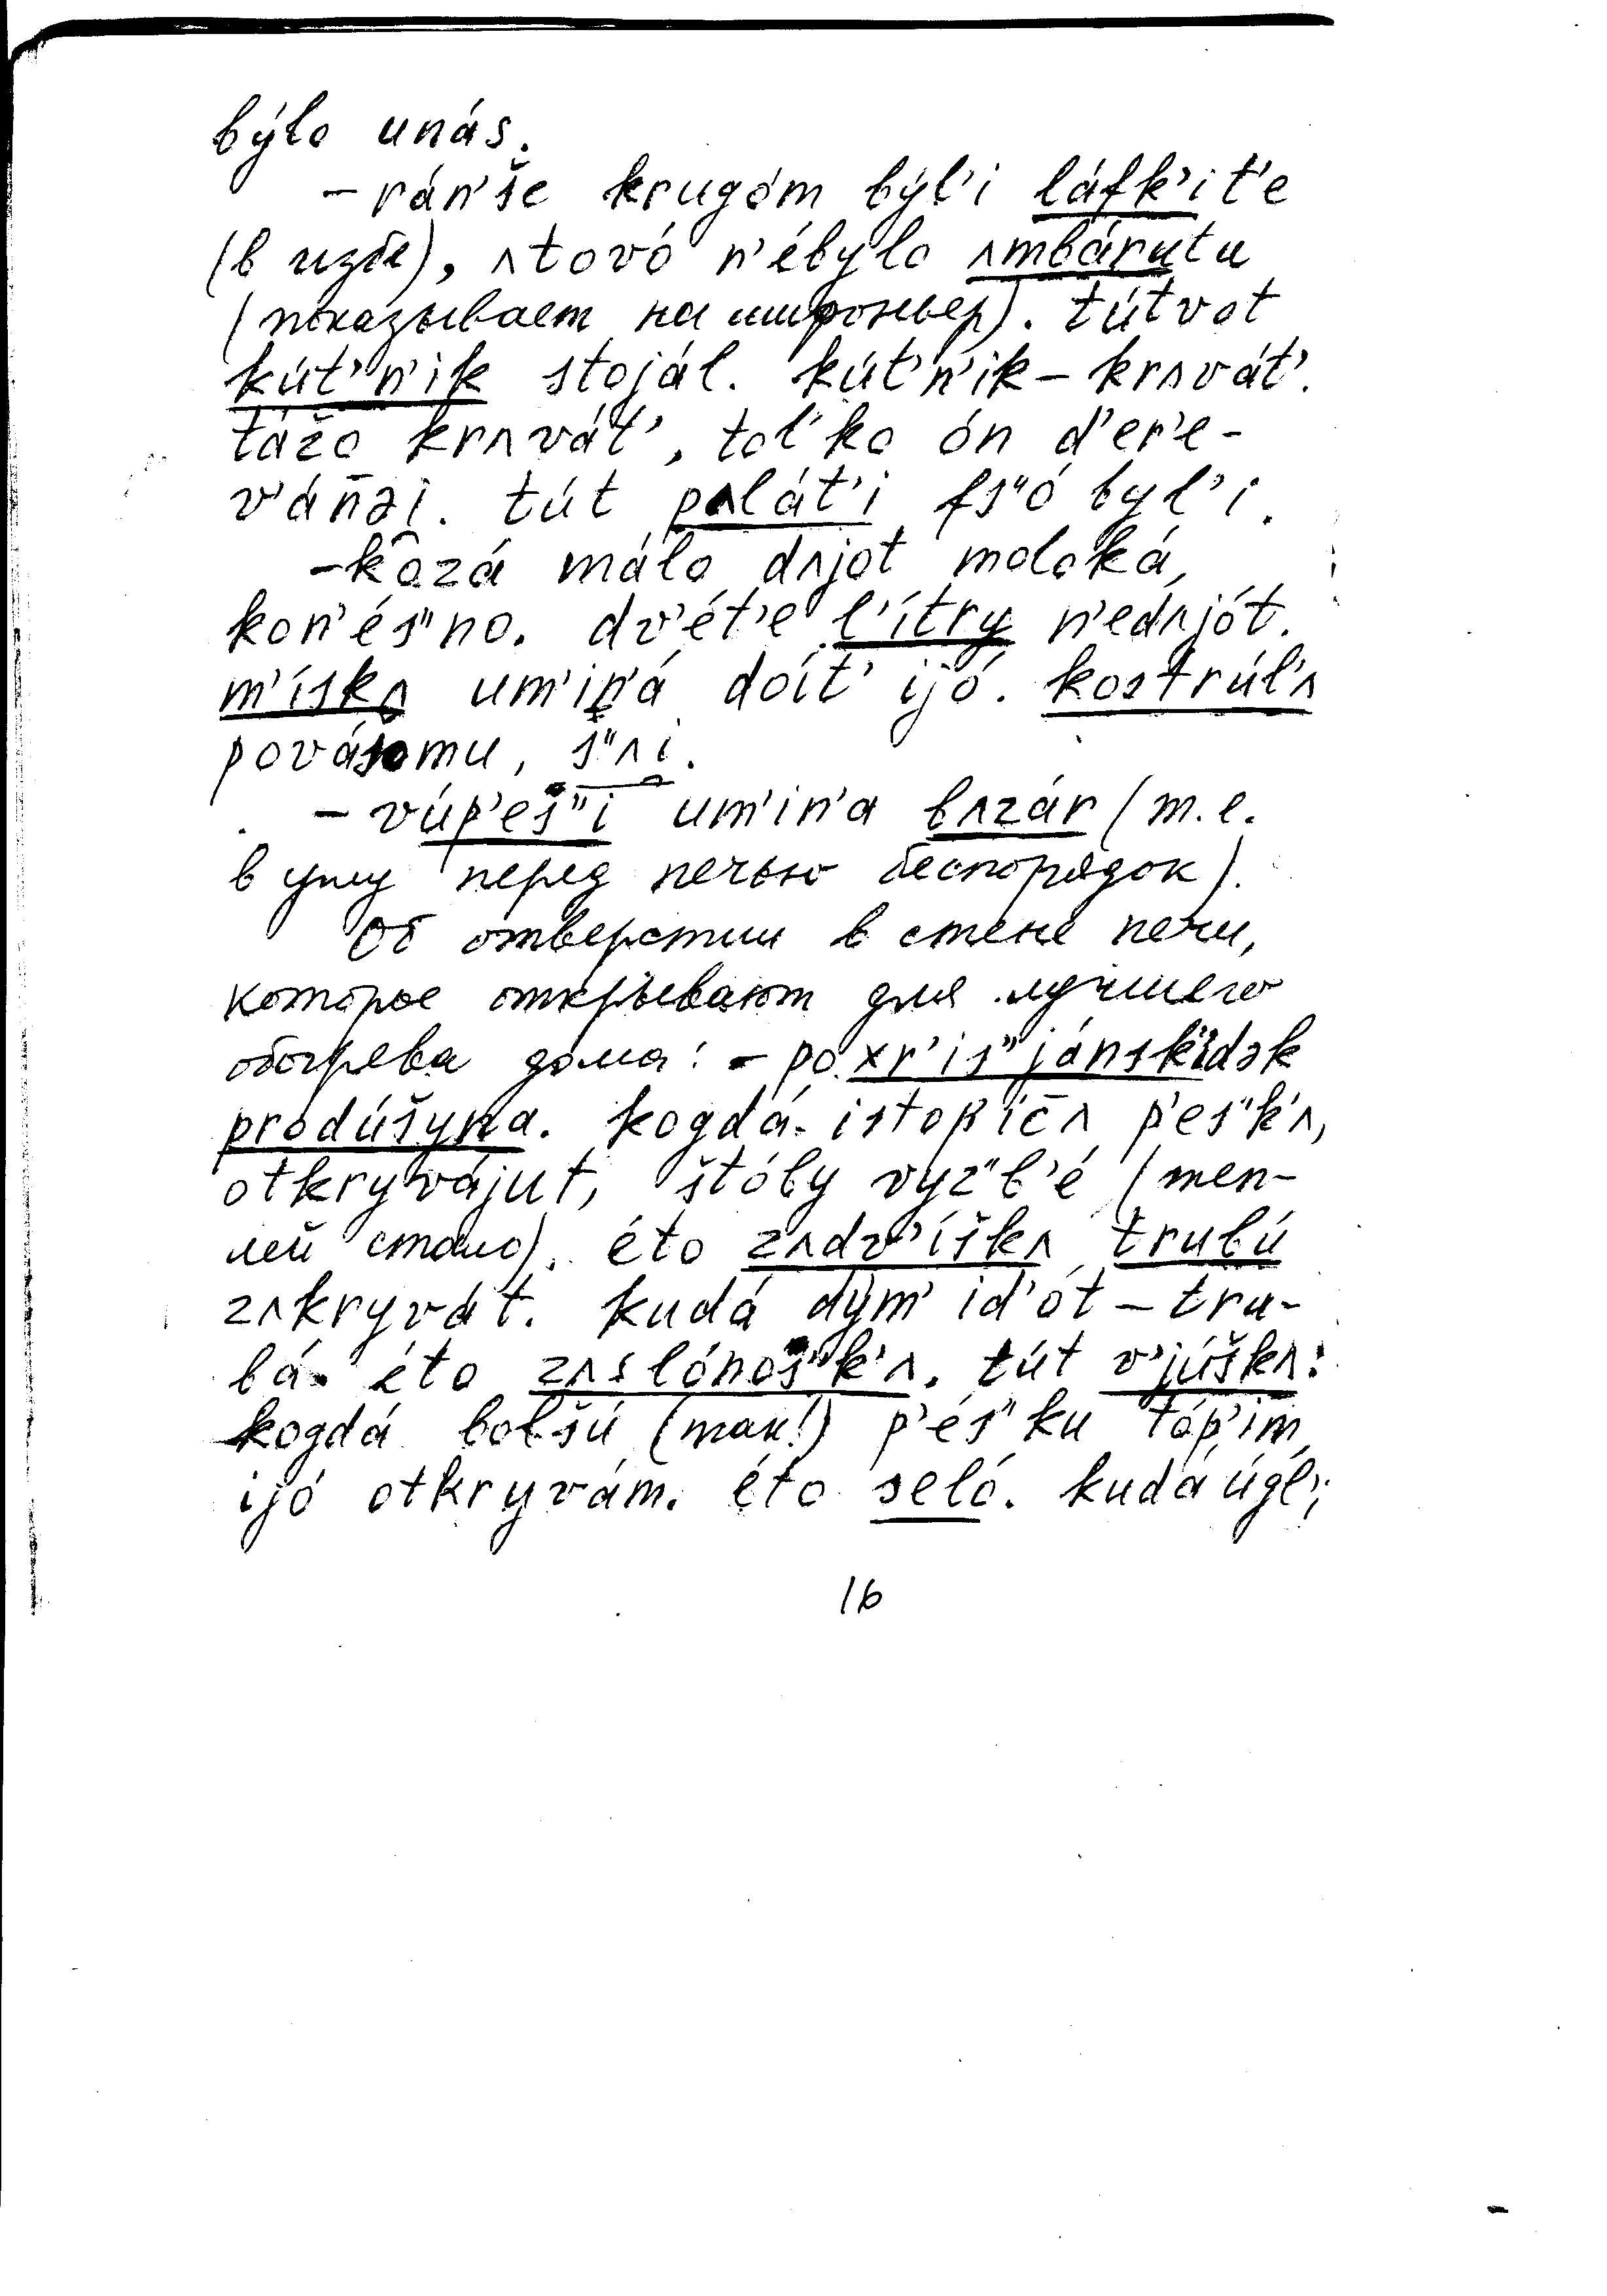 býlo unás.
– rán'še krugóm býl'i láfk'it'e
(в избе), ʌtovó n'ébylo ʌmbárutu
(показывает на шифоньер). tútvot
kút'n'ik stojál. kút'n'ik – krʌvát'.
tážo krʌvát', tol'ko ón d'er'e-
v'án̄əi. tút pʌlát'i fs"ó byl'i.
– kôzá málo dʌjot moloká,
kon'és"no. dv'ét'e l'ítry n'edʌjót.
m'ískʌ um'in'á doít' ijó. kostrúl'ʌ
povášomu, s"ʌi.
– vúp'eš"i um'in'a bʌzár (т.е.
в углу перед печью беспорядок).
Об отверстии в стене печи,
которое открывают для лучшего
обогрева дома: – po xr'is"jánsk'idək
prodúšyna. kogdá istop'íčʌ p'es"k'ʌ,
otkryvájut, štóby vyz"b'é (теп-
лей стало). éto zʌdv'íškʌ trubú
zʌkryvát. kudá dým id'ót – tru-
bá. éto zʌslónos"k'ʌ. tút v'júškʌ:
kogdá bol'šú (так!) p'és"ku tóp'im
ijó otkryvám. éto seló. kudá úgl'i
16